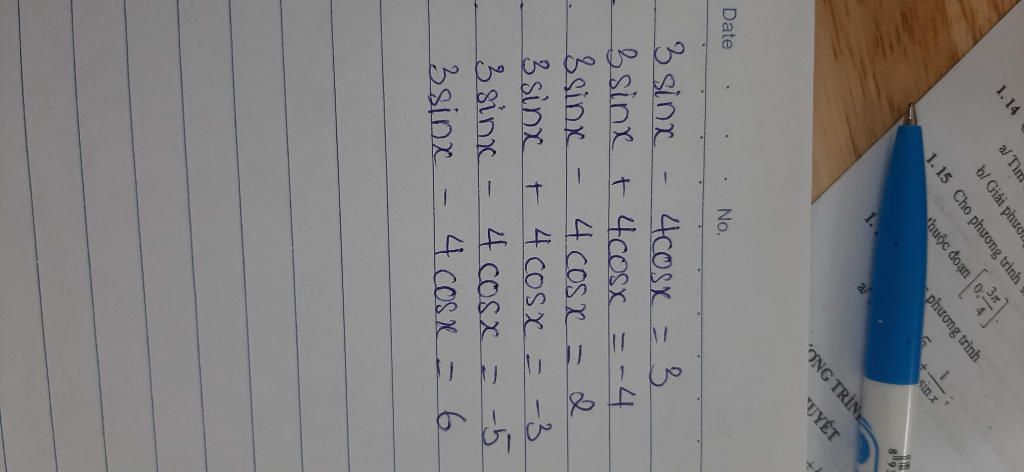 Date
No.
3 sinx - 4cosx = 3
3 sinx + 4cosx = -4
3 sinx - 4 cosx = 2
3 sinx + 4 cosx = -3
3 sinx - 4 cosx = -5
3 sinx - 4 cosx = 6
1. 14
a/ Tìm
b/ Giải phươn
1. 15 Cho phương trình
thuộc đoạn [0; 3π/4].
phương trình
1/sin x ;
ƠNG TRÌN
UYẾT